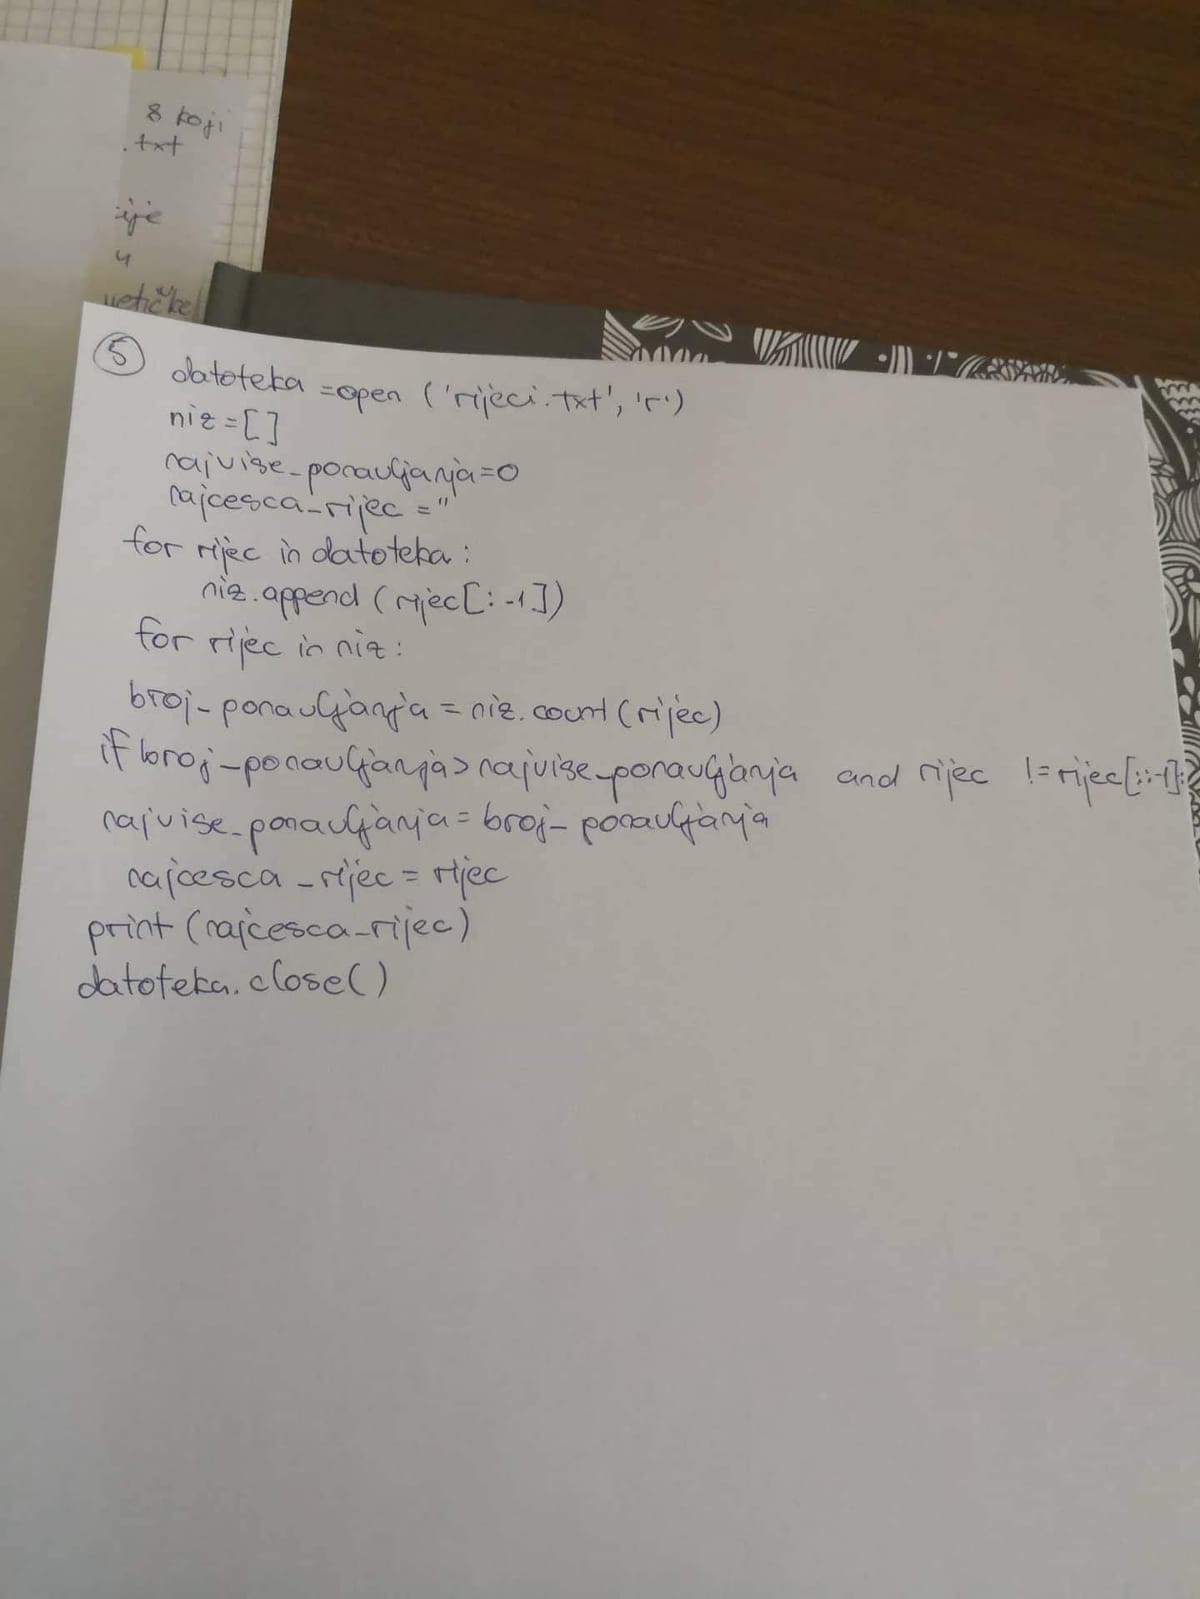 8 koji
.txt
ije
u
5
datoteka =open ('rijeci.txt', 'r')
niz=[]
najvise_ponavljanja=0
najcesca_rijec =''
for rijec in datoteka:
niz.append (rijec[:-1])
for rijec in niz:
broj_ponavljanja = niz.count (rijec)
if broj_ponavljanja>najvise_ponavljanja and rijec !=rijec[::-1]:
najvise_ponavljanja= broj_ponavljanja
najcesca_rijec = rijec
print (najcesca_rijec)
datoteka.close()